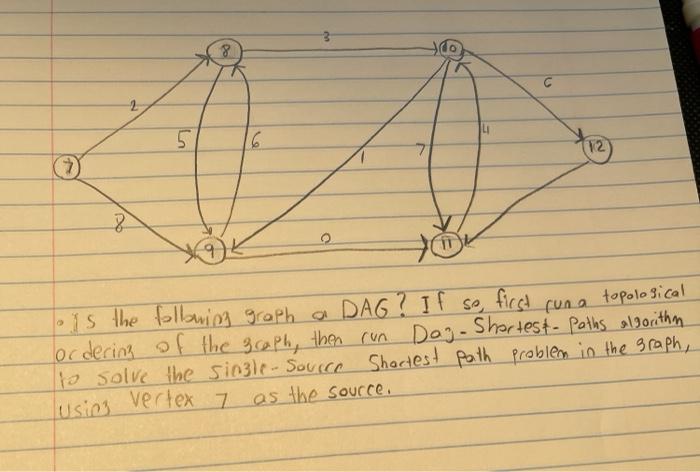 3
8
10
2
6
5
6
7
4
12
7
1
8
0
9
11
• Is the following graph a DAG? If so, first run a topological
ordering of the graph, then run Dag-Shortest-Paths algorithm
to solve the single-Source Shortest path problem in the graph,
using vertex 7 as the source.